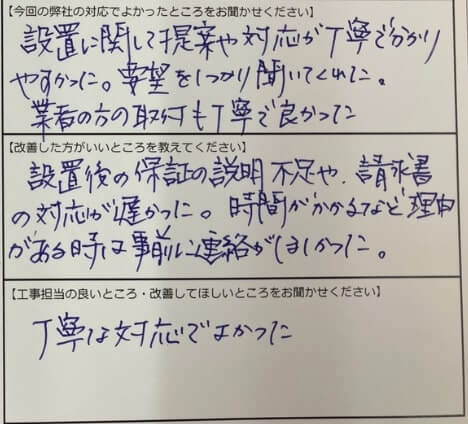 【今回の弊社の対応でよかったところをお聞かせください】
設置に関して提案や対応が丁寧で分かり
やすかった。要望をしっかり聞いてくれた。
業者の方の取付も丁寧で良かった
【改善した方がいいところを教えてください】
設置後の保証の説明不足や、請求書
の対応が遅かった。時間がかかるなど理由
がある時は事前に連絡がほしかった。
【工事担当の良いところ・改善してほしいところをお聞かせください】
丁寧な対応でよかった